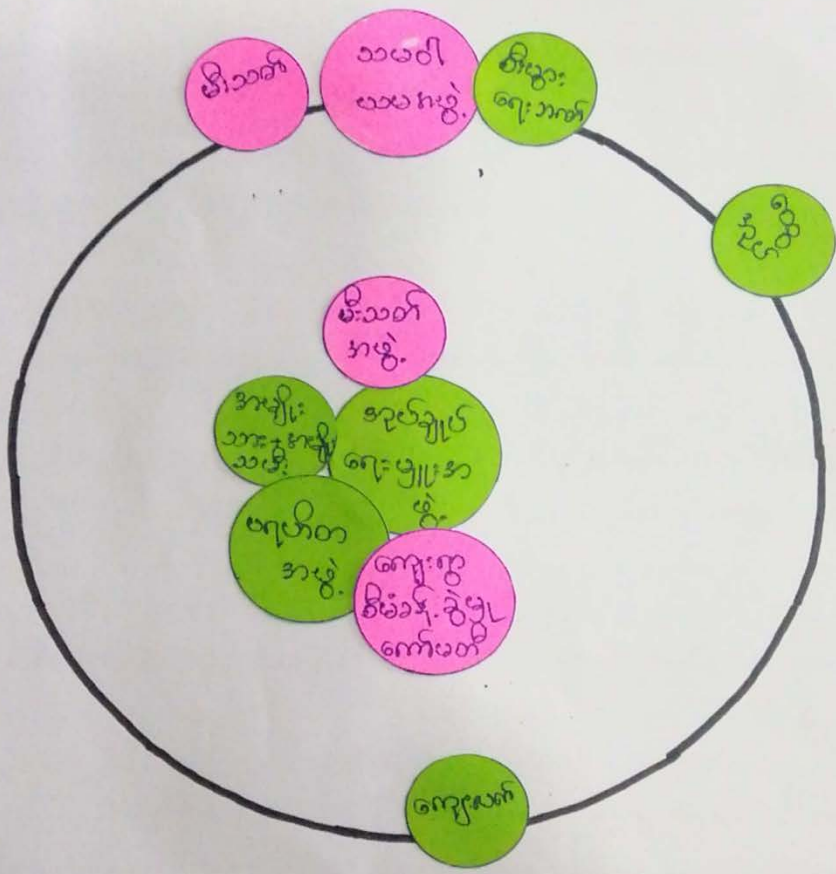 မီးသတ်
သမဝါ
ယမအဖွဲ့
စီးပွား
ရေးဘဏ်
မီးသတ်
အဖွဲ့
အမျိုး
သား+အမျိုး
သမီး
အုပ်ချုပ်
ရေးမှူးအ
ဖွဲ့
ပရဟိတ
အဖွဲ့
ကျေးရွာ
စီမံခန့်ခွဲမှု
ကော်မတီ
ကျေးလက်